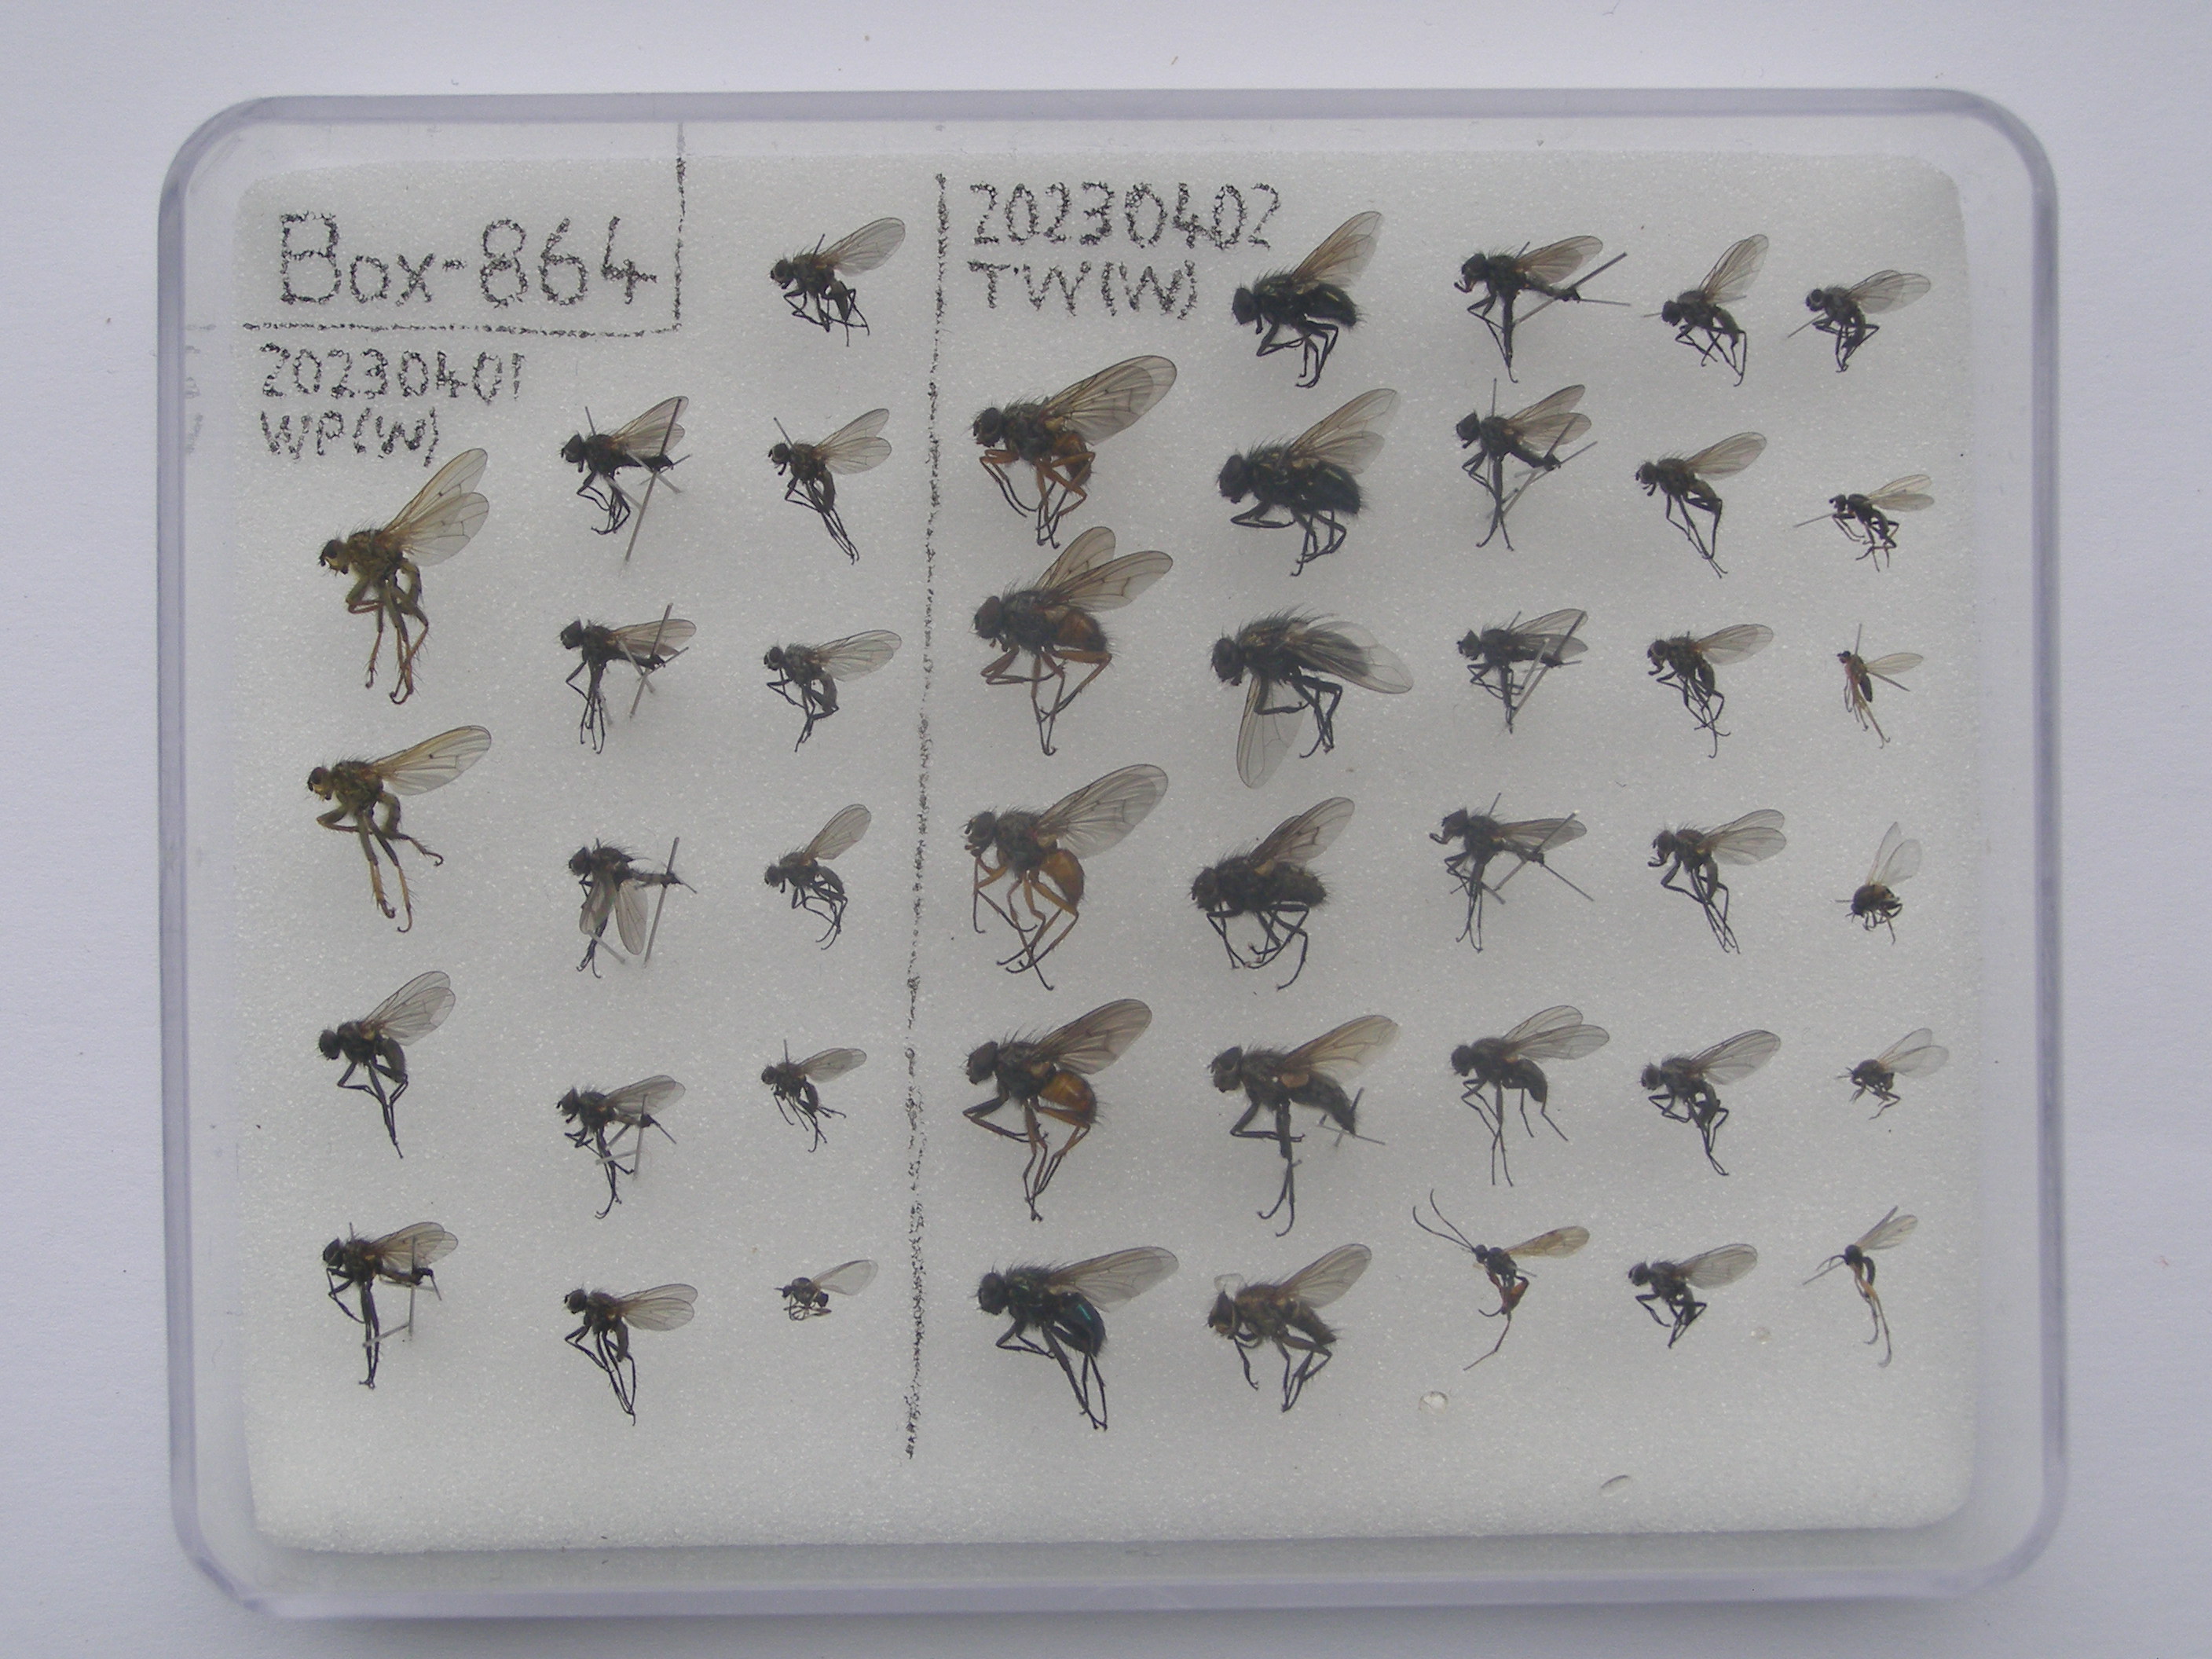 Box-864
20230401
WP(W)
20230402
TW(W)